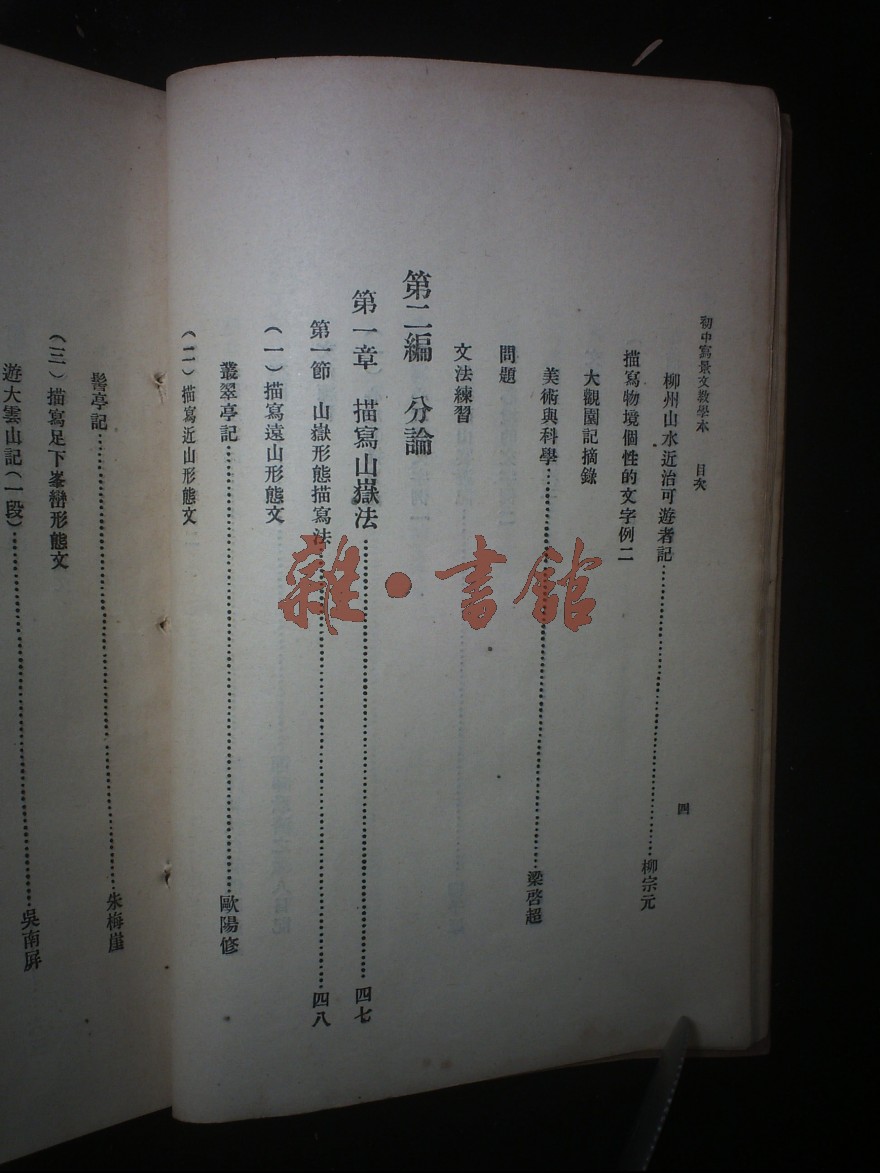 初中寫景文教學本 目次
四
柳州山水近治可遊者記……柳宗元
描寫物境個性的文字例二
大觀園記摘錄
美術與科學……梁啓超
問題
文法練習
第二編 分論
第一章 描寫山嶽法……四七
第一節 山嶽形態描寫法……四八
(一)描寫遠山形態文
叢翠亭記……歐陽修
(二)描寫近山形態文
髻亭記……朱梅崖
(三)描寫足下峯巒形態文
遊大雲山記(一段)……吳南屏
雜·書館